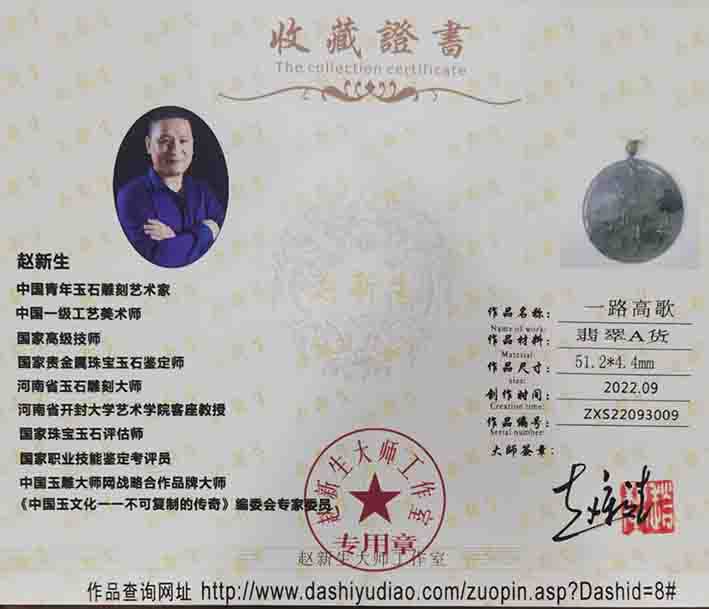 收藏證書
The collection certificate
赵新生
中国青年玉石雕刻艺术家
中国一级工艺美术师
国家高级技师
国家贵金属珠宝玉石鉴定师
河南省玉石雕刻大师
河南省开封大学艺术学院客座教授
国家珠宝玉石评估师
国家职业技能鉴定考评员
中国玉雕大师网战略合作品牌大师
《中国玉文化一一不可复制的传奇》编委会专家委员
作品名称： 一路高歌
Name of work:
作品材料： 翡翠A货
Material:
作品尺寸： 51.2*4.4mm
size:
创作时间： 2022.09
Creation time:
作品编号： ZXS22093009
Serial number:
大师签章：
赵新生大师工作室
专用章
赵新生大师工作室
作品查询网址 http://www.dashiyudiao.com/zuopin.asp?Dashid=8#